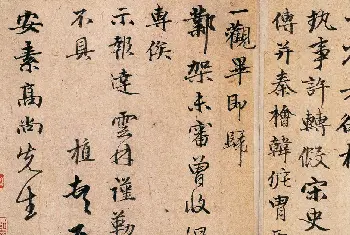 執事許轉假宋史
傳并秦檜韓侂冑
一觀畢即歸
鄴架未審曾收
專俟
示報達雲林謹勒
不具 植
安素高尚先生